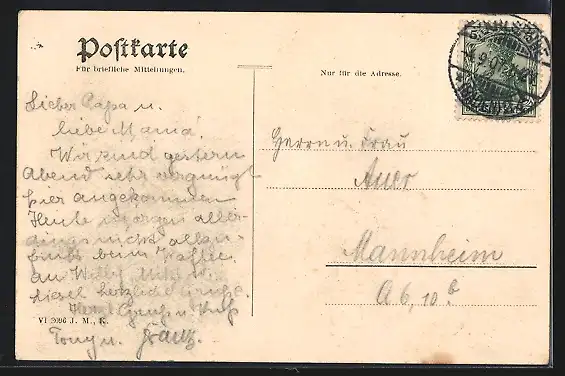 Postkarte
Für briefliche Mitteilungen.
Nur für die Adresse.
Lieber Papa u.
liebe Mama!
Wir sind gestern
Abend sehr vergnügt
hier angekommen
Heute morgen aller-
dings nicht allzu-
früh beim Kaffee.
an Willy
Liesel herzliche Grüße.
Gruss u. Kuß
Tony u. Franz.
Herrn u. Frau
Auer
Mannheim
A 6, 10 b
VI 2096 J. M., K.